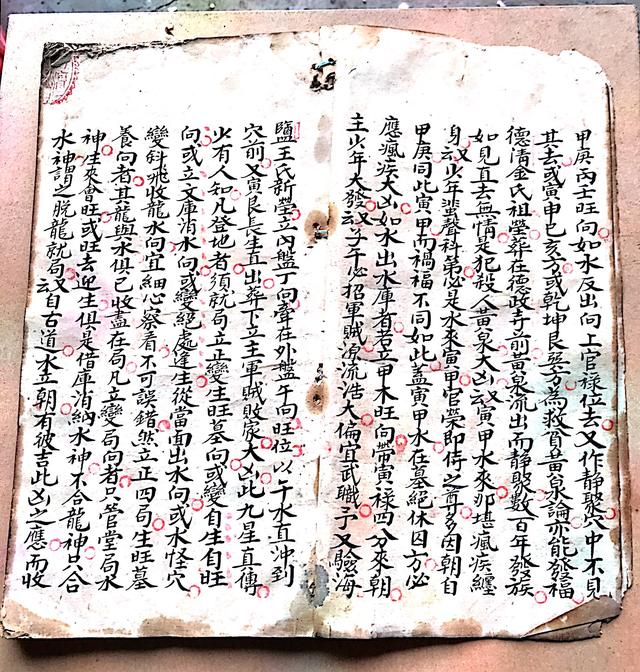 甲庚丙壬旺向如水反出向上官祿位去又作靜聚穴中不見
其去或寅甲巳亥方或乾坤艮巽方為救貧黃泉論亦能發福
德清金氏祖塋葬在德政寺前黃泉流出而靜聚數百年發族
如見直去無情是犯殺人黃泉大凶云寅甲水來那堪瘋疾纏
身又云少年蜚聲科第必是水來寅甲官榮即侍之尊多因朝自
甲庚同此寅甲而禍福不同如此蓋寅甲水在墓絕休囚方必
應瘋疾大凶如水出水庫者若立甲木旺向帶寅祿四分來朝
主少年大發又云子午必招軍賊潦流浩大偏宜武職予又驗海
鹽王氏新塋立內盤丁向聳在外盤午向旺位以午水直沖到
穴前又寅艮長生直出葬下立主軍賊敗家大凶此九星直傳
少有人知凡登地者須就局立正變生旺墓向或變自生自旺
向或立文庫消水向或變絕處逢生從當面出水向或水怪穴
變斜飛收龍水向宜細心察看不可誤錯然立正四局生旺墓
養向者其龍與水俱已收盡在局凡立變局向者只管堂局水
神生來會旺或旺去迎生俱是借庫消納水神不合龍神只合
水神謂之脫龍就局又云自古道水立朝有彼吉此凶之應而收